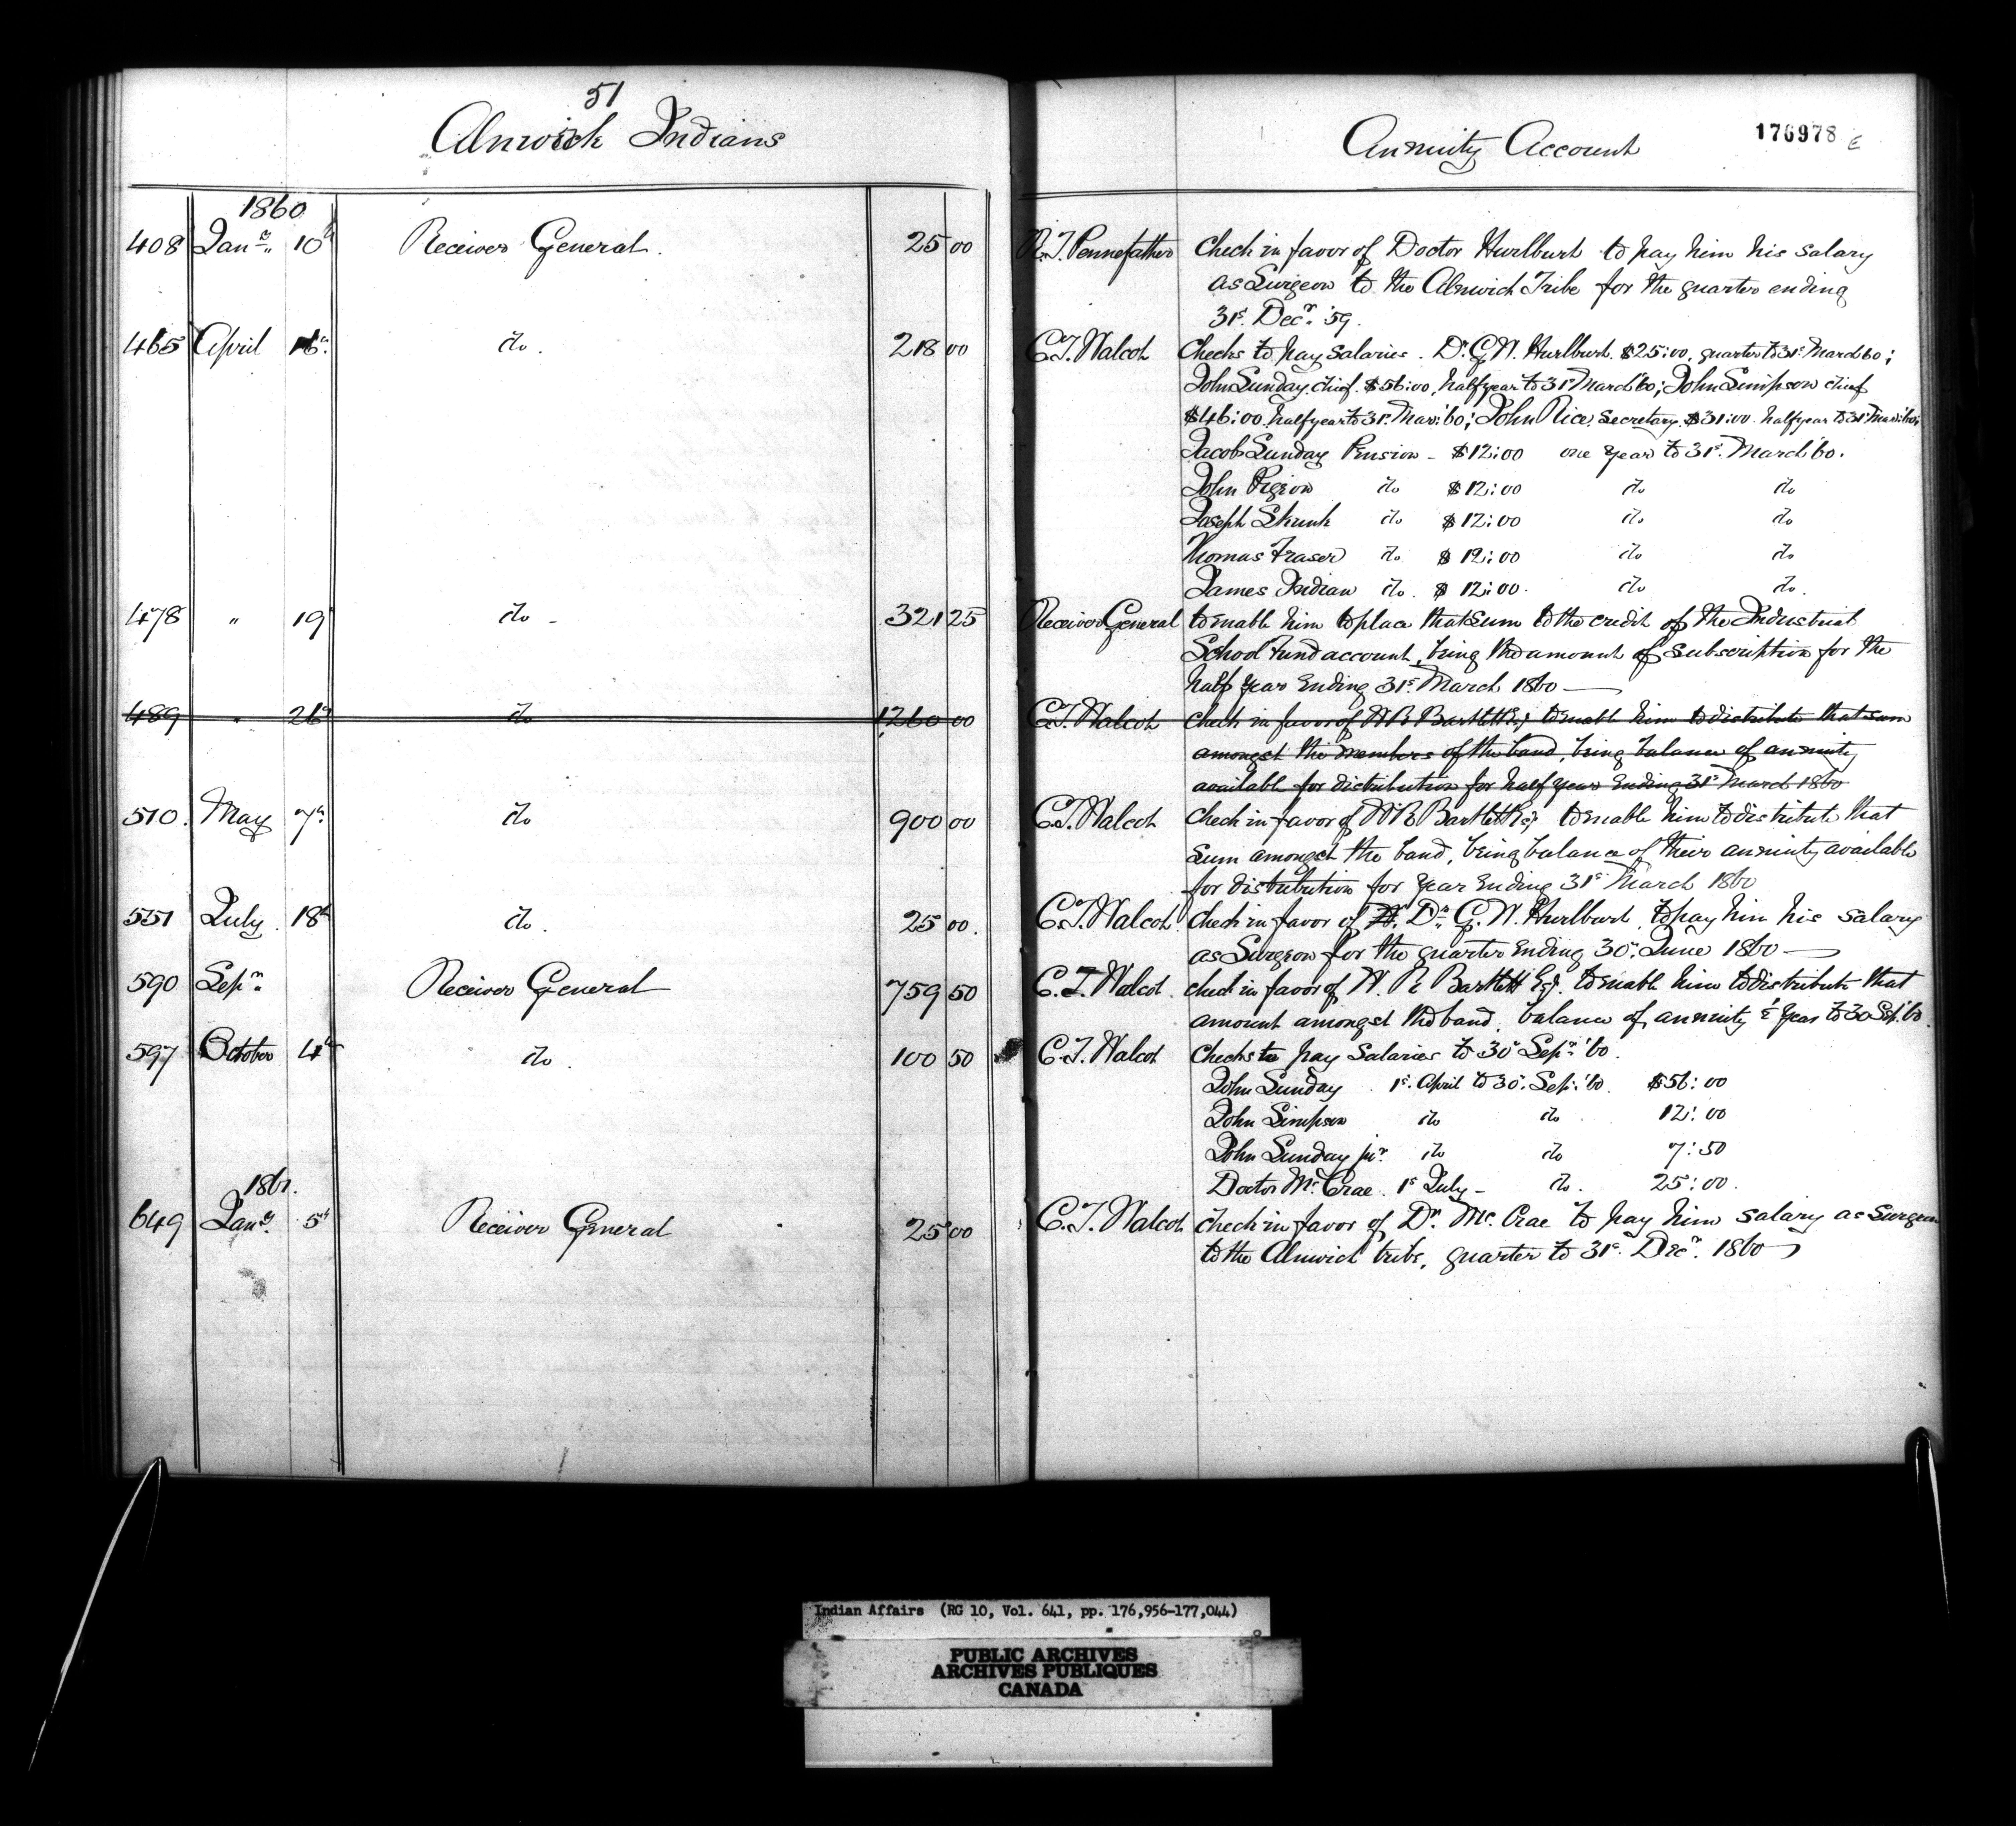 51
Alnwick Indians
Annuity Account
176978
1860
408 Jany. 10th Receiver General. 25 00 R.T. Pennefather Check in favor of Doctor Hurlburt to pay him his salary
as Surgeon to the Alnwick Tribe for the quarter ending
31st. Decr. '59.
465 April 16th. do. 218 00 C.T. Walcot Checks to pay salaries. Dr. G.W. Hurlburt. $25:00, quarter to 31st. March 60;
John Sunday, chief. $56:00, half year to 31st March '60; John Simpson chief
$46:00. half year to 31st. Mar: '60; John Rice, Secretary. $31:00 half year to 31st Mar: '60;
Jacob Sunday Pension - $12:00 one year to 31st. March '60.
John Pigeon do $12:00 do do
Joseph Skunk do $12:00 do do
Thomas Fraser do $12:00 do do
James Indian do. $12:00. do do.
478 " 19 do - 321 25 Receiver General to enable him to place that sum to the credit of the Industrial
School Fund account, being the amount of subscription for the
half year ending 31st. March 1860
489 " 26th do 1260 00 C.T. Walcot check in favor of W R Bartlett Esq to enable him to distribute that sum
amongst the members of the band, being balance of annuity
available for distribution for half year ending 31st March 1860
510. May 7th. do 900 00 C.T. Walcot Check in favor of W R Bartlett Esq to enable him to distribute that
sum amongst the band, being balance of their annuity available
for distribution for year ending 31st March 1860
551 July 18th do. 25 00. C.T. Walcot. check in favor of Dr. G. W. Hurlburt, to pay him his salary
as Surgeon for the quarter ending 30th. June 1860
590 Sepr. Receiver General 759 50 C.T. Walcot. check in favor of W. R Bartlett Esq. to enable him to distribute that
amount amongst the band, balance of annuity ½ year to 30 Sep. '60.
597 October 4th do. 100 50 C.T. Walcot Checks to pay Salaries to 30th Sepr. '60.
John Sunday 1st. April to 30th. Sep. '60. $56:00
John Simpson do do 12:00
John Sunday jnr. do do 7:50
Doctor Mc. Crae. 1st July - do. 25:00.
1861.
649 Jany. 5th Receiver General 25 00 C.T. Walcot check in favor of Dr. Mc. Crae to pay him salary as Surgeon
to the Alnwick tribe, quarter to 31st. Decr. 1860
Indian Affairs (RG 10, Vol. 641, pp. 176,956-177,044)
PUBLIC ARCHIVES
ARCHIVES PUBLIQUES
CANADA